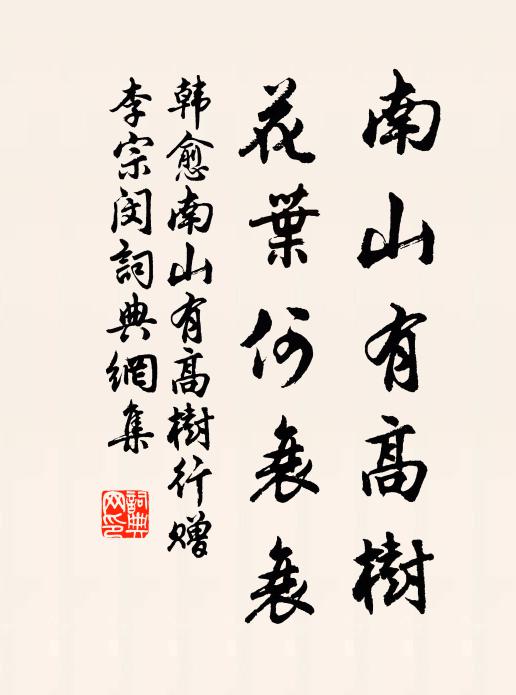 南山有高樹
花葉何衰衰
韩愈南山有高樹行赠
李宗闵詞典網集
詞典网印